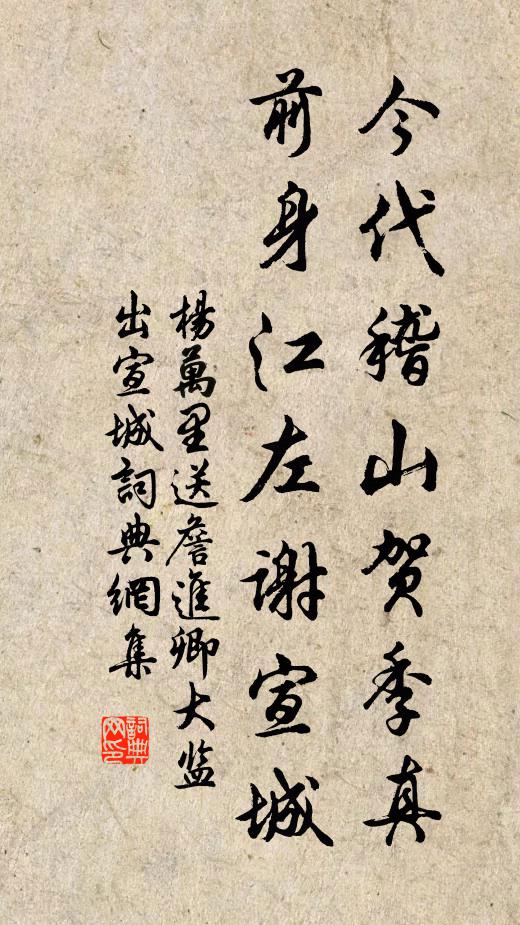 今代稽山贺季真
前身江左谢宣城
楊萬里送詹進卿大监
出宣城詞典網集
詞典
网印